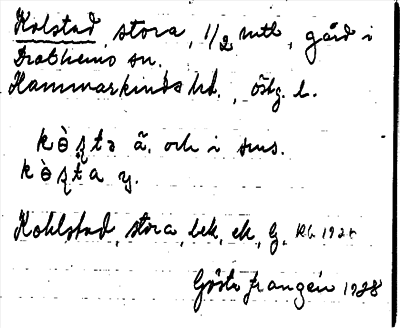 Kolstad, stora, 1/2 mtl, gård i
Drothems sn.
Hammarkinds hd., Östg. l.
kɵ̀ʂtə ä. och i sms.
kɵ̀ʂta y.
Kohlstad, stora, bek, ek, G, Kb. 1925
Gösta Franzén 1928